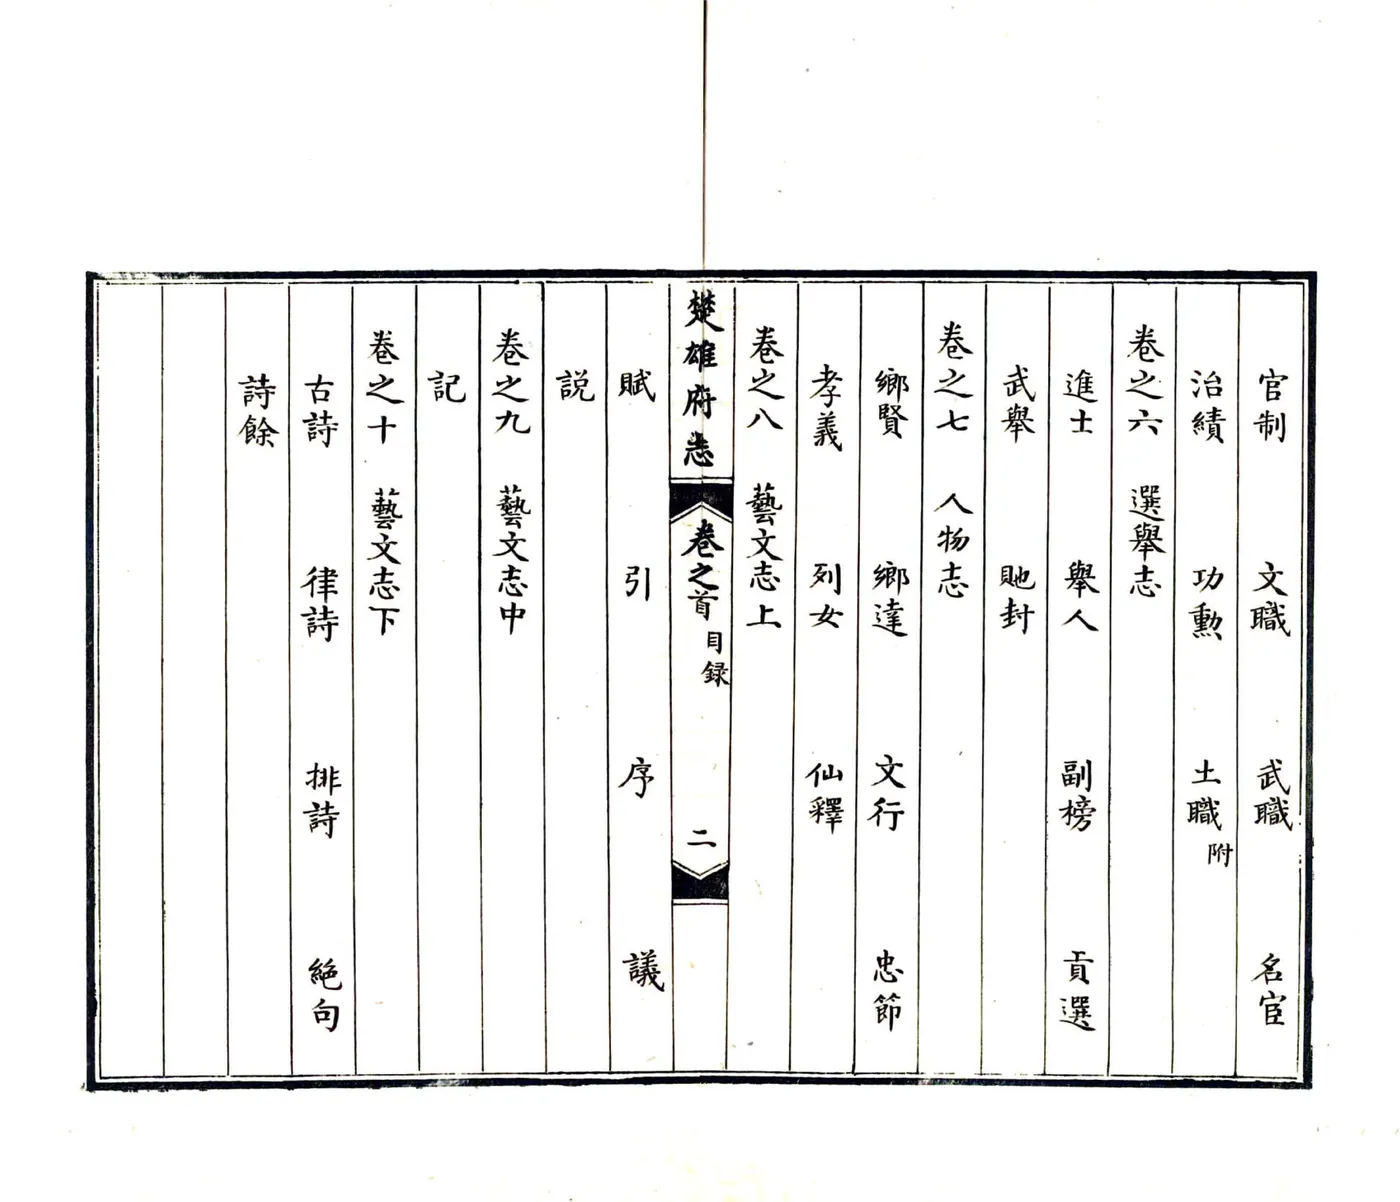 官制　文職　武職　名宦
治績　功勲　土職附
卷之六　選舉志
進士　舉人　副榜　貢選
武舉　貤封
卷之七　人物志
鄉賢　鄉達　文行　忠節
孝義　列女　仙釋
卷之八　藝文志上
楚雄府志　卷之首　目録　二
賦　引　序　議
説
卷之九　藝文志中
記
卷之十　藝文志下
古詩　律詩　排詩　絕句
詩餘